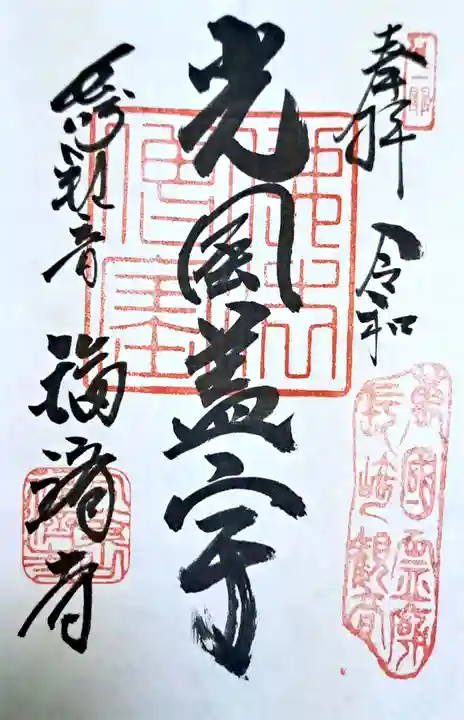 奉拝 令和
萬國霊廟
長崎観音
光風蓋宇
観音 福済寺